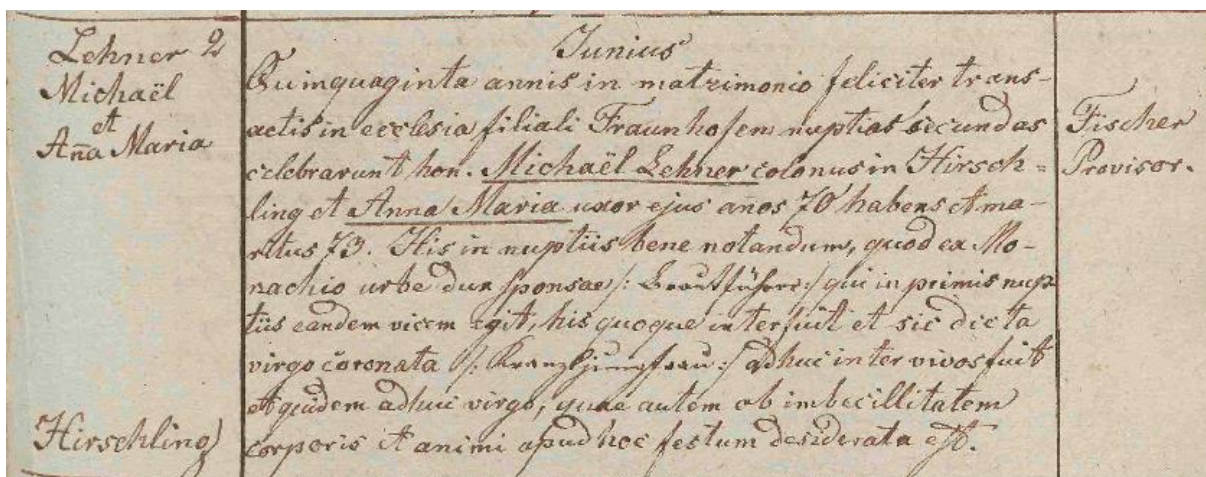 Lehner 2
Michaël
et
Aña Maria
Hirschling
Junius
Quinquaginta annis in matrimonio feliciter trans-
actis in ecclesia filiali Fraunhofen nuptias secundas
celebrarunt hon. Michaël Lehner colonus in Hirsch=
ling et Anna Maria uxor ejus años 70 habens et ma-
ritus 73. His in nuptiis bene notandum, quod ex Mo-
nachio urbe dux sponsae /: Brautführer :/ qui in primis nup-
tiis eandem vicem egit, his quoque interfuit et sic dicta
virgo coronata /: Kranzljungfrau :/ adhuc inter vivos fuit
et quidem adhuc virgo, quae autem ob imbecillitatem
corporis et animi apud hoc festum desiderata est.
Fischer
Provisor.